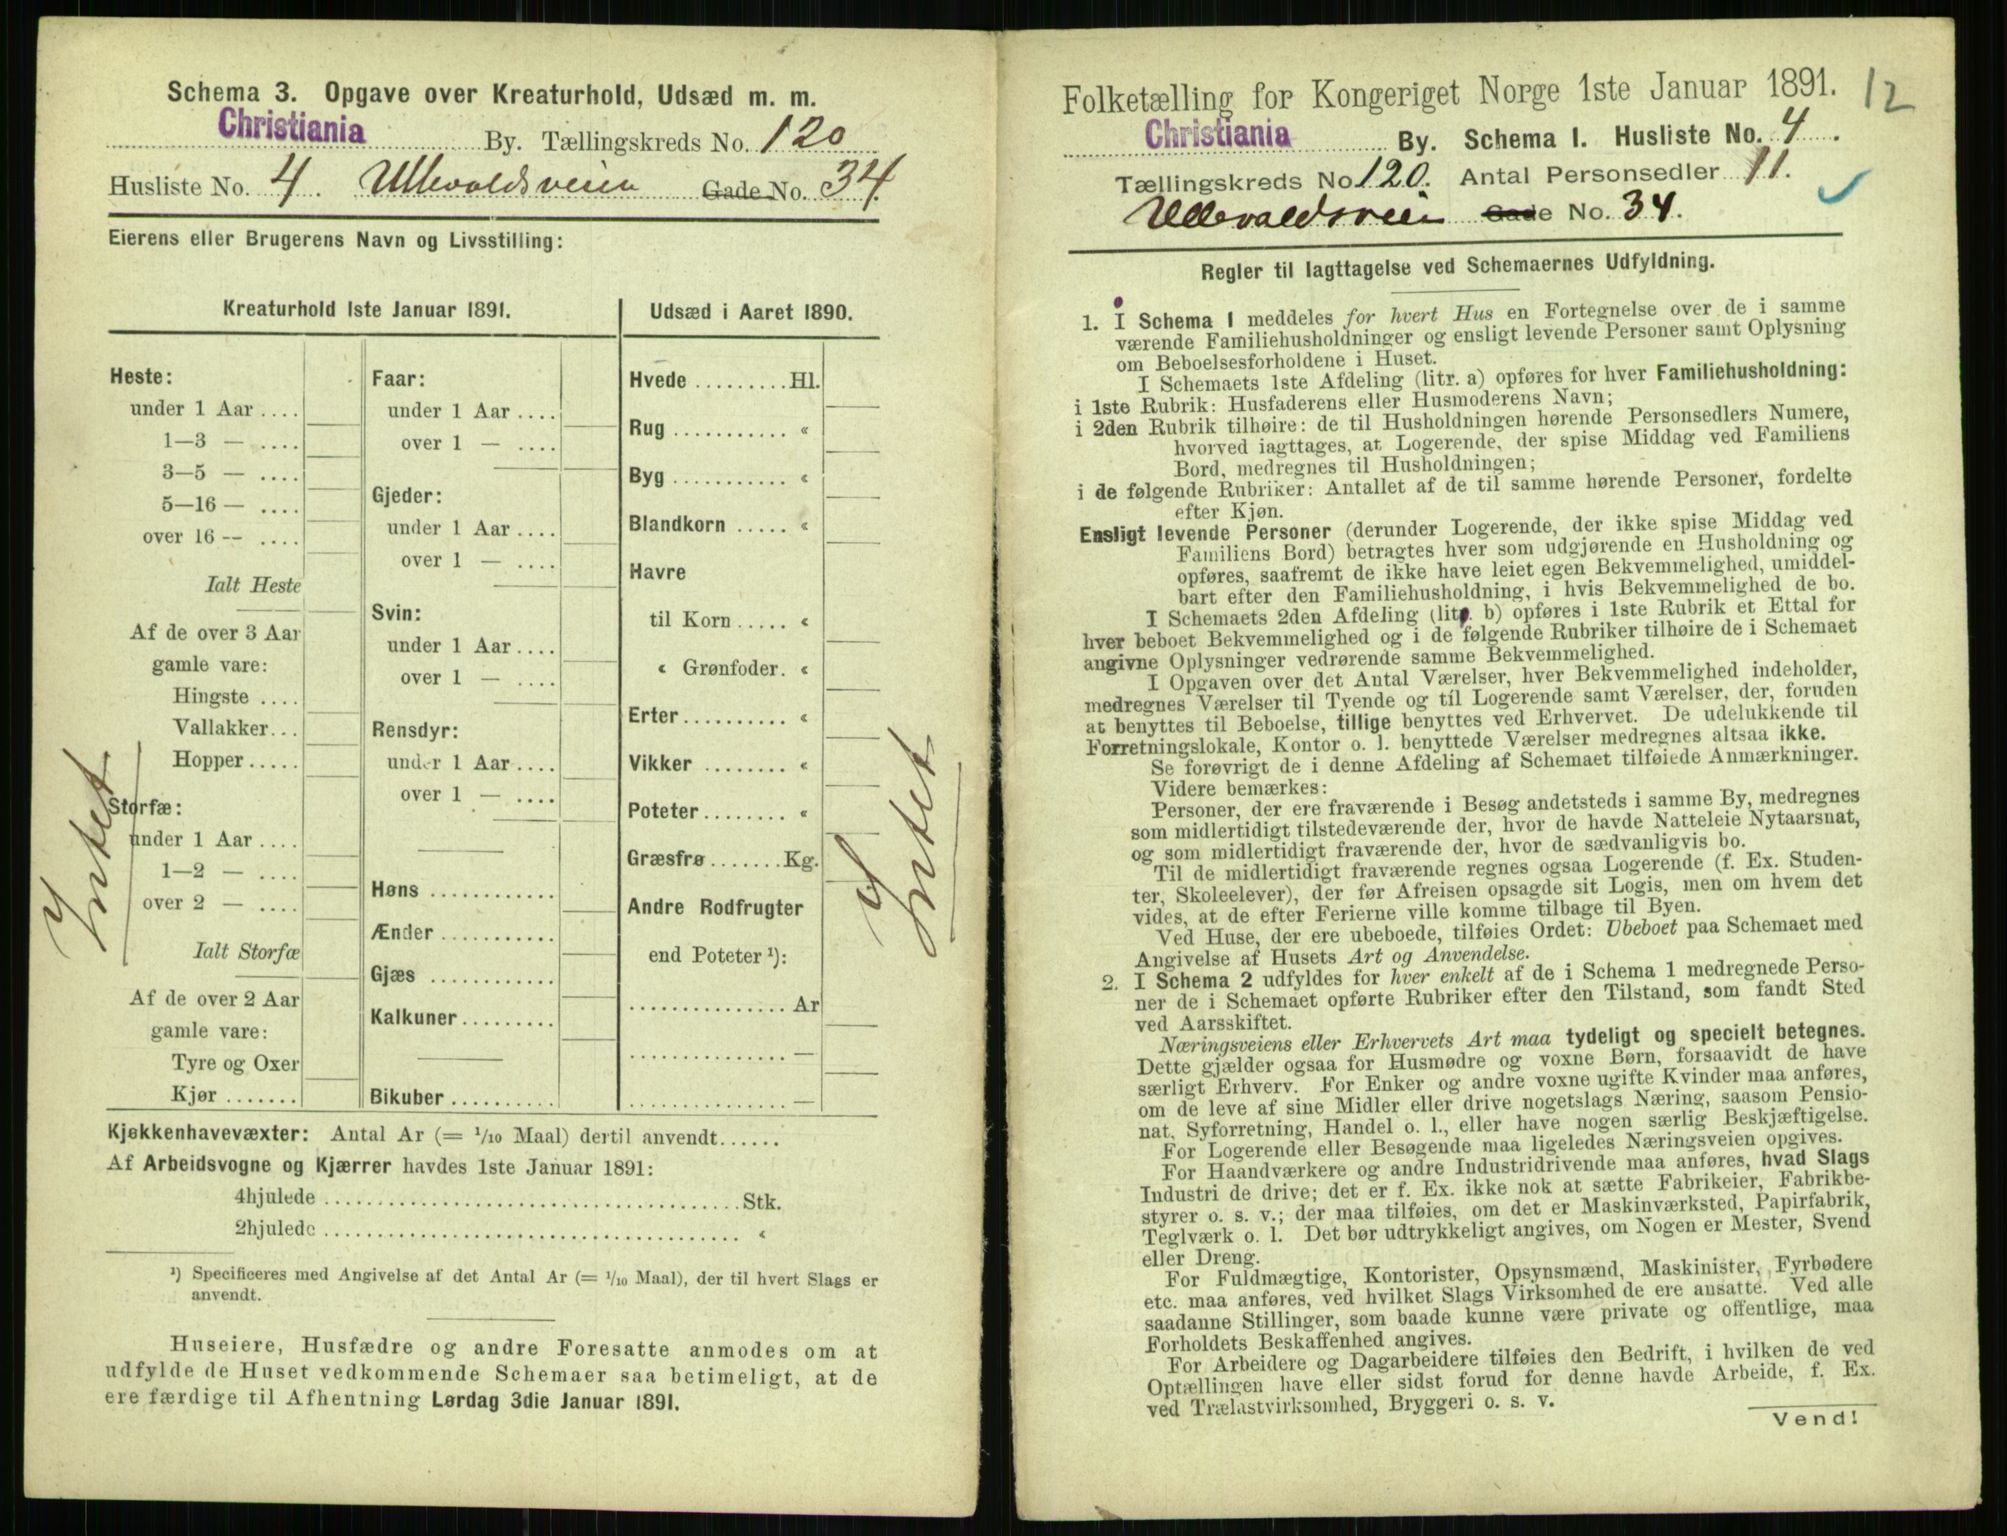 Schema 3. Opgave over Kreaturhold, Udsæd m. m.
Christiania By. Tællingskreds No. 120
Husliste No. 4. Ullevoldsveien Gade No. 34.
Eierens eller Brugerens Navn og Livsstilling:
Kreaturhold 1ste Januar 1891.
Heste:
under 1 Aar ....
1—3 — ....
3—5 — ....
5—16 — ....
over 16 -- ....
Ialt Heste
Af de over 3 Aar
gamle vare:
Hingste ....
Vallakker...
Hopper.....
Storfæ:
under 1 Aar ....
1—2 — ....
over 2 — ....
Ialt Storfæ
Af de over 2 Aar
gamle vare:
Tyre og Oxer
Kjør .......
Intet
Faar:
under 1 Aar ....
over 1 — ....
Gjeder:
under 1 Aar ....
over 1 — ....
Svin:
under 1 Aar ....
over 1 — ....
Rensdyr:
under 1 Aar ....
over 1 — ....
Høns ............
Ænder ...........
Gjæs ............
Kalkuner.........
Bikuber ..........
Udsæd i Aaret 1890.
Hvede .........Hl.
Rug ........... «
Byg ........... «
Blandkorn ..... «
Havre
til Korn ..... «
« Grønfoder. «
Erter.......... «
Vikker ........ «
Poteter........ «
Græsfrø.......Kg.
Andre Rodfrugter
end Poteter ¹):
............... Ar
............... —
............... —
Intet
Kjøkkenhavevæxter: Antal Ar (= 1/10 Maal) dertil anvendt......
Af Arbeidsvogne og Kjærrer havdes 1ste Januar 1891:
4hjulede ..................................... Stk.
2hjulede ..................................... «
¹) Specificeres med Angivelse af det Antal Ar (= 1/10 Maal), der til hvert Slags er
anvendt.
Huseiere, Husfædre og andre Foresatte anmodes om at
udfylde de Huset vedkommende Schemaer saa betimeligt, at de
ere færdige til Afhentning Lørdag 3die Januar 1891.
Folketælling for Kongeriget Norge 1ste Januar 1891. 12
Christiania By. Schema I. Husliste No. 4.
Tællingskreds No 120. Antal Personsedler 11.
Ullevaldsveien Gade No. 34.
Regler til Iagttagelse ved Schemaernes Udfyldning.
1. I Schema 1 meddeles for hvert Hus en Fortegnelse over de i samme
værende Familiehusholdninger og ensligt levende Personer samt Oplysning
om Beboelsesforholdene i Huset.
I Schemaets 1ste Afdeling (litr. a) opføres for hver Familiehusholdning:
i 1ste Rubrik: Husfaderens eller Husmoderens Navn;
i 2den Rubrik tilhøire: de til Husholdningen hørende Personsedlers Numere,
hvorved iagttages, at Logerende, der spise Middag ved Familiens
Bord, medregnes til Husholdningen;
i de følgende Rubriker: Antallet af de til samme hørende Personer, fordelte
efter Kjøn.
Ensligt levende Personer (derunder Logerende, der ikke spise Middag ved
Familiens Bord) betragtes hver som udgjørende en Husholdning og
opføres, saafremt de ikke have leiet egen Bekvemmelighed, umiddel-
bart efter den Familiehusholdning, i hvis Bekvemmelighed de bo.
I Schemaets 2den Afdeling (litr. b) opføres i 1ste Rubrik et Ettal for
hver beboet Bekvemmelighed og i de følgende Rubriker tilhøire de i Schemaet
angivne Oplysninger vedrørende samme Bekvemmelighed.
I Opgaven over det Antal Værelser, hver Bekvemmelighed indeholder,
medregnes Værelser til Tyende og til Logerende samt Værelser, der, foruden
at benyttes til Beboelse, tillige benyttes ved Erhvervet. De udelukkende til
Forretningslokale, Kontor o. l. benyttede Værelser medregnes altsaa ikke.
Se forøvrigt de i denne Afdeling af Schemaet tilføiede Anmærkninger.
Videre bemærkes:
Personer, der ere fraværende i Besøg andetsteds i samme By, medregnes
som midlertidigt tilstedeværende der, hvor de havde Natteleie Nytaarsnat,
og som midlertidigt fraværende der, hvor de sædvanligvis bo.
Til de midlertidigt fraværende regnes ogsaa Logerende (f. Ex. Studen-
ter, Skoleelever), der før Afreisen opsagde sit Logis, men om hvem det
vides, at de efter Ferierne ville komme tilbage til Byen.
Ved Huse, der ere ubeboede, tilføies Ordet: Ubeboet paa Schemaet med
Angivelse af Husets Art og Anvendelse.
2. I Schema 2 udfyldes for hver enkelt af de i Schema 1 medregnede Perso-
ner de i Schemaet opførte Rubriker efter den Tilstand, som fandt Sted
ved Aarsskiftet.
Næringsveiens eller Erhvervets Art maa tydeligt og specielt betegnes.
Dette gjælder ogsaa for Husmødre og voxne Børn, forsaavidt de have
særligt Erhverv. For Enker og andre voxne ugifte Kvinder maa anføres,
om de leve af sine Midler eller drive nogetslags Næring, saasom Pensio-
nat, Syforretning, Handel o. l., eller have nogen særlig Beskjæftigelse.
For Logerende eller Besøgende maa ligeledes Næringsveien opgives.
For Haandværkere og andre Industridrivende maa anføres, hvad Slags
Industri de drive; det er f. Ex. ikke nok at sætte Fabrikeier, Fabrikbe-
styrer o. s. v.; der maa tilføies, om det er Maskinværksted, Papirfabrik,
Teglværk o. l. Det bør udtrykkeligt angives, om Nogen er Mester, Svend
eller Dreng.
For Fuldmægtige, Kontorister, Opsynsmænd, Maskinister, Fyrbødere
etc. maa anføres, ved hvilket Slags Virksomhed de ere ansatte. Ved alle
saadanne Stillinger, som baade kunne være private og offentlige, maa
Forholdets Beskaffenhed angives.
For Arbeidere og Dagarbeidere tilføies den Bedrift, i hvilken de ved
Optællingen have eller sidst forud for denne havde Arbeide, f. Ex.
ved Trælastvirksomhed, Bryggeri o. s. v.
Vend!